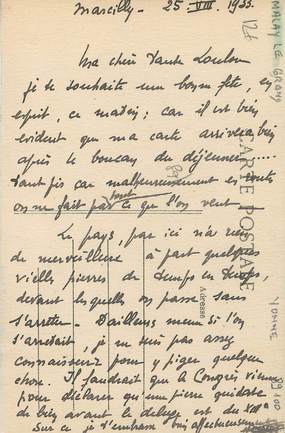 Marcilly - 25 VIII. 1933.
Ma chère Tante Loulou
je te souhaite une bonne fête, en
esprit, ce matin; car il est bien
évident que ma carte arrivera bien
après le boucan du déjeuner.....
Tant pis car malheureusement en route
on ne fait pas tout ce que l'on veut
Le pays, par ici n'a rien
de merveilleux à part quelques
vieilles pierres de temps en temps,
devant lesquelles on passe sans
s'arrêter - D'ailleurs même si l'on
s'arrêtait, je ne suis pas assez
connaisseur pour y piger quelque
chose. Il faudrait que le Congrès vienne
pour déclarer qu'une pierre
de bien avant le déluge est du XIIIe
Sur ce je t'embrasse bien affectueusement
CARTE POSTALE
Adresse
MALAY LE GRAND
YONNE
89100